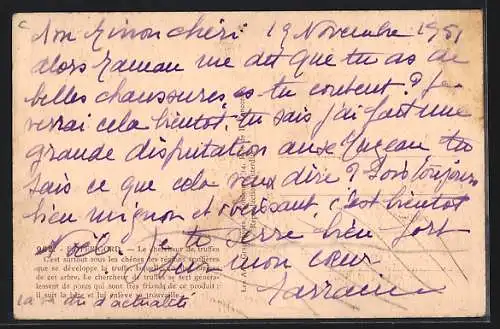 Mon Minon chéri 19 Novembre 1951
alors Maman me dit que tu as de
belles chaussures, es tu content? Je
verrai cela bientot. tu sais j'ai fait une
grande disputation aux Jugeau tu
sais ce que cela veux dire? Sois toujours
bien mignon et obeissant, c'est bientot
Noël. Je te serre bien fort
sur mon cœur
Parrain
PÉRIGORD. - Le chercheur de truffes
C'est surtout sous les chênes des régions
que se développe la truffe
de cet arbre. Le chercheur de truffes se sert généra-
lement de porcs qui sont très friands de ce produit:
il suit la bête et lui enlève sa trouvaille.
d'actualité